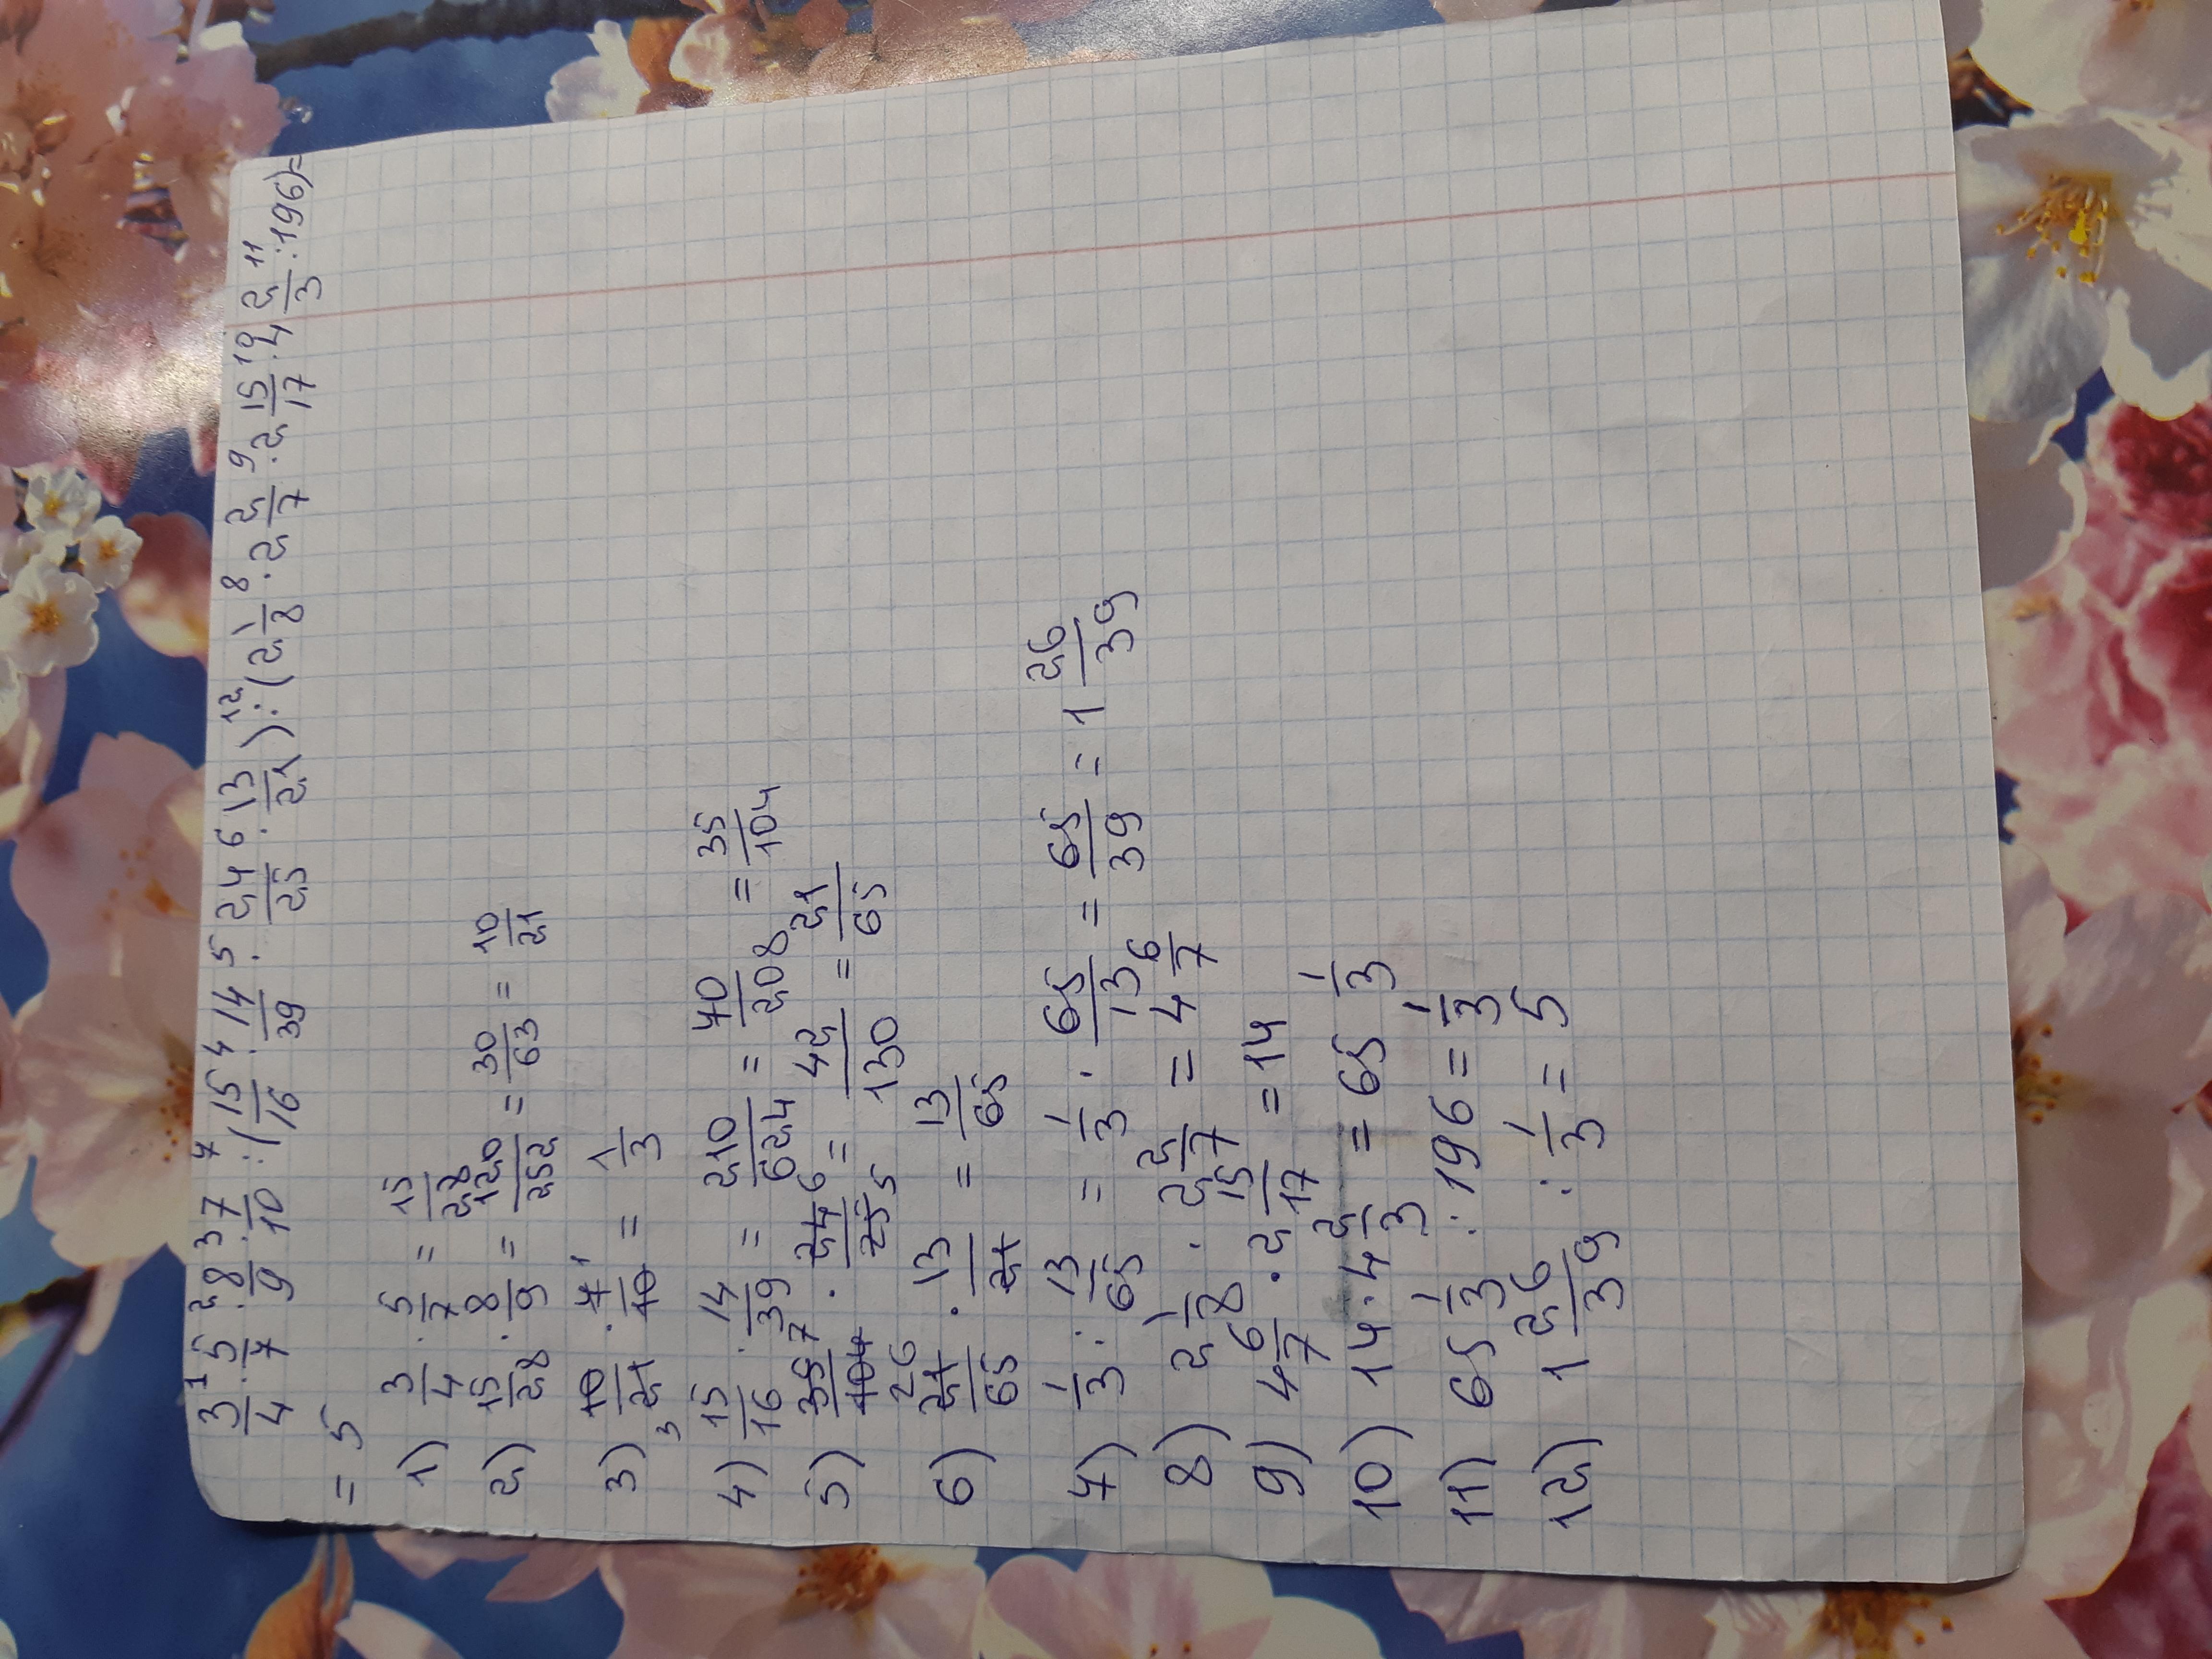 3/4 ¹· 5/7 ²· 8/9 ³· 7/10 ⁷: (15/16 ⁴· 14/39 ⁵· 24/25 ⁶· 13/21) ¹²: (2 1/8 ⁸· 2 2/7 ⁹· 2 15/17 ¹⁰· 4 2/3 ¹¹: 196) =
= 5
1) 3/4 · 5/7 = 15/28
2) 15/28 · 8/9 = 120/252 = 30/63 = 10/21
3) 10/21 3 · 7/10 1 = 1/3
4) 15/16 · 14/39 = 210/624 = 70/208 = 35/104
5) 35/104 7 26 · 24/25 6 5 = 42/130 = 21/65
6) 21/65 · 13/21 = 13/65
7) 1/3 : 13/65 = 1/3 · 65/13 = 65/39 = 1 26/39
8) 2 1/8 · 2 2/7 = 4 6/7
9) 4 6/7 · 2 15/17 = 14
10) 14 · 4 2/3 = 65 1/3
11) 65 1/3 : 196 = 1/3
12) 1 26/39 : 1/3 = 5